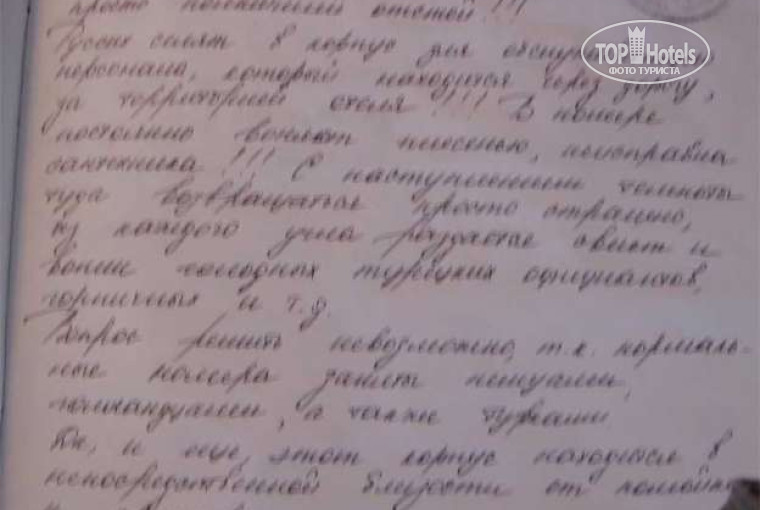 просто
отстой !!!
Русских селят в корпус для
персонала, который находится через дорогу,
за территорией отеля !!! В номере
постоянно воняет плесенью, неисправна
сантехника !!! С наступлением темноты
туда возвращаться просто страшно,
из каждого угла раздаётся свист и
вопли голодных турецких официантов,
горничных и т.д.
Вопрос решить невозможно, т.к. нормаль-
ные номера заняты немцами,
голландцами, а также турками
Да, и еще, этот корпус находится в
непосредственной близости от помойки
TOP Hotels
ФОТО ТУРИСТА